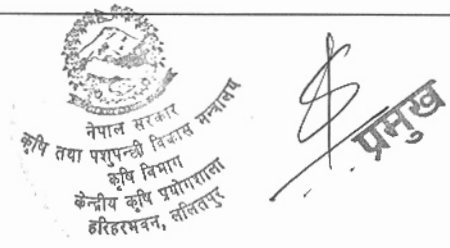 नेपाल सरकार
कृषि तथा पशुपन्छी विकास मन्त्रालय
कृषि विभाग
केन्द्रीय कृषि प्रयोगशाला
हरिहरभवन, ललितपुर
प्रमुख